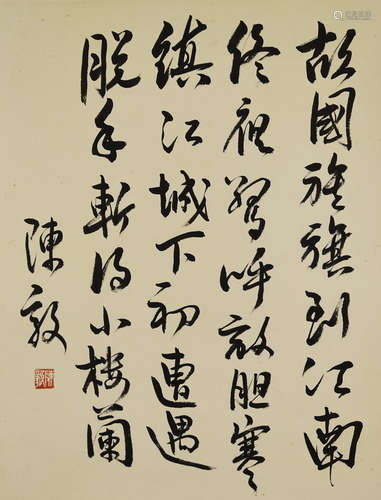 故國旌旗到江南
終夜驚呼敌胆寒
鎮江城下初遭遇
脱手斬得小楼蘭
陳毅